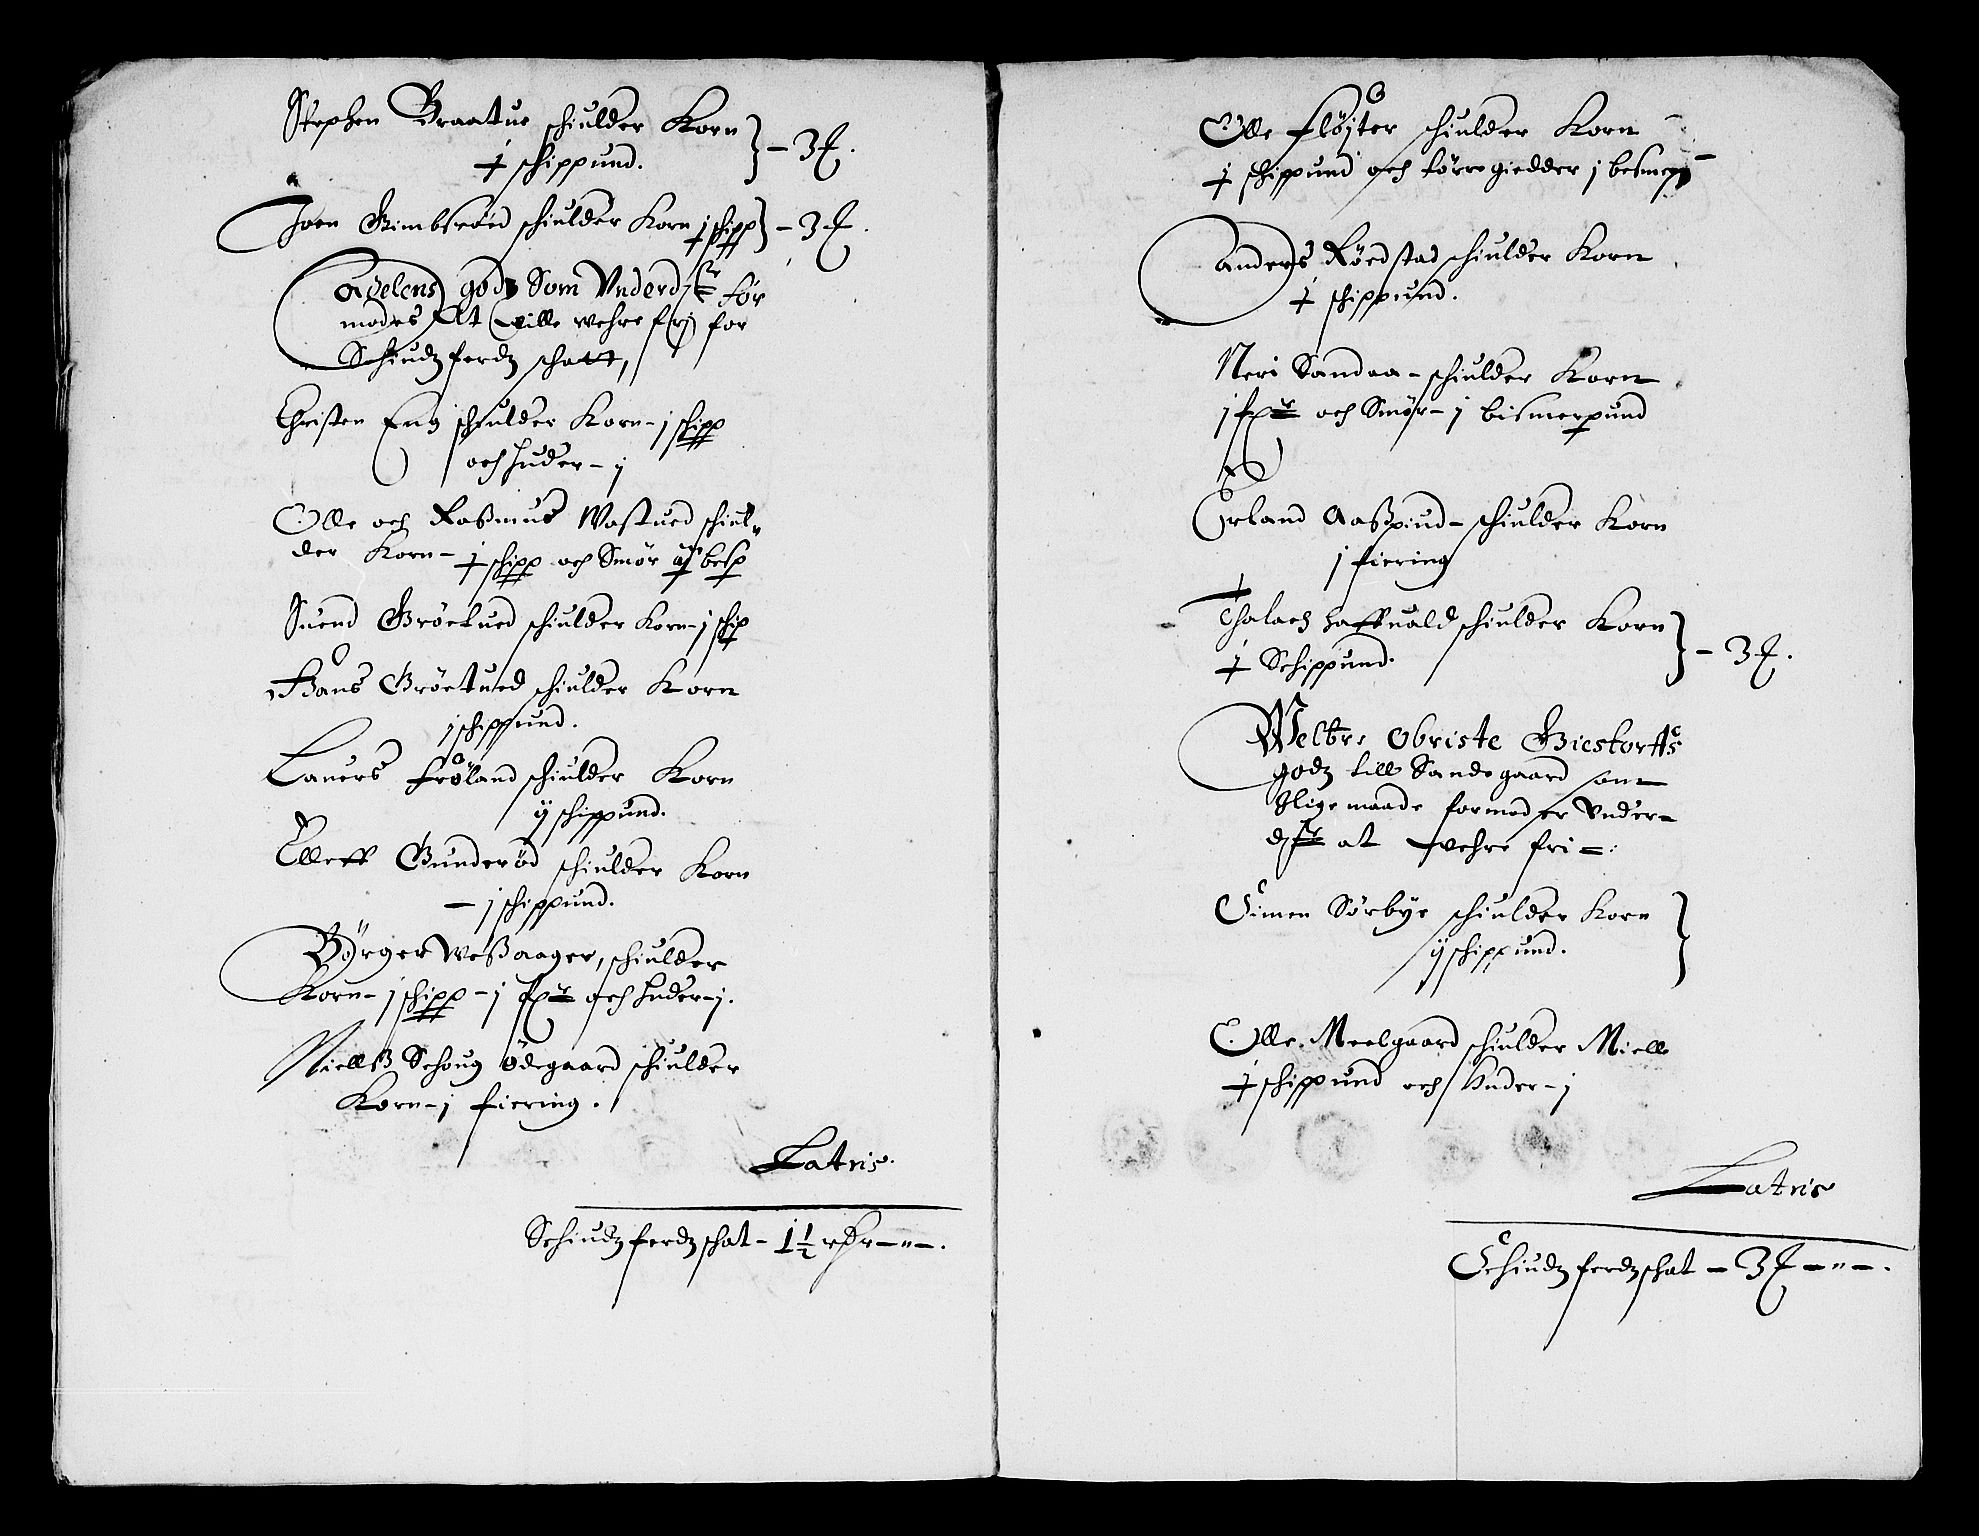 Stephen Braatue schiulder Korn
j schippund. } - 3 ₰.
Joen Gimbsrøed schiulder Korn j schipp } - 3 ₰.
Adelens godz Som Underd för
modes At wille wehre frj for
Schiudzferdz schatt,
Christen Eng schiulder Korn - j schipp
och huder - j
Olle och Raßmus Wastued schiul-
der Korn - j schipp och Smör besp
Suend Gröetued schiulder Korn - j schip
Hans Gröetued schiulder Korn
j schippund.
Lauers fröland schiulder Korn
ij schippund.
Elleff Gunderöd schiulder Korn
- j schippund.
Börger Weßaager, schiulder
Korn - j schipp - j och huder - j.
Niellß Schoug Ödegaard schiulder
Korn - j fiering.
Latris.
Schiudzferdz schat - 1½ rdr - " -.
Olle flöjter schiulder Korn
j schippund och törregiedder j besmerp
Anders Röedstad schiulder Korn
j schippund.
Neri Sandaa - schiulder Korn
j och Smör - j bismerpund
Erland Aaßpiud - schiulder Korn
j fiering
Thalach haffuald schiulder Korn
j Schippund. } - 3 ₰.
Welbr: Obriste Giestorffs
godz till Sandegaard som
Jlige maade formoder Under-
d at wehre fri - :
Simen Sörbye schiulder Korn
ij schippund. }
Olle Meelgaard schiulder Miell
j schippund och huder - j
Latris
Schiudzferdz schat - 3 ₰ - " -.